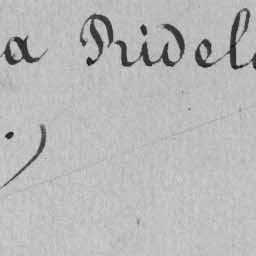 a Pridel
.)